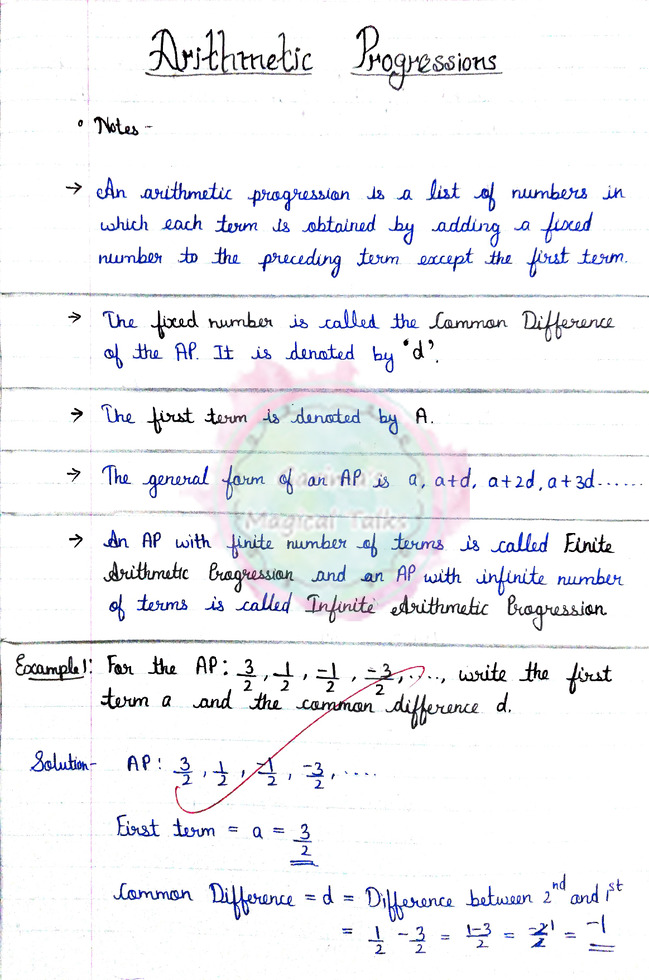 Arithmetic Progressions
• Notes -
→ An arithmetic progression is a list of numbers in
which each term is obtained by adding a fixed
number to the preceding term except the first term.
→ The fixed number is called the Common Difference
of the AP. It is denoted by 'd'.
→ The first term is denoted by A.
→ The general form of an AP is a, a+d, a+2d, a+3d......
→ An AP with finite number of terms is called Finite
Arithmetic Progression and an AP with infinite number
of terms is called Infinite Arithmetic Progression
Magical Talks
Example 1: For the AP: 3/2, 1/2, -1/2, -3/2, ....., write the first
term a and the common difference d.
Solution- AP: 3/2, 1/2, -1/2, -3/2, ....
First term = a = 3/2
Common Difference = d = Difference between 2nd and 1st
= 1/2 - 3/2 = 1-3/2 = -2/2 1 = -1